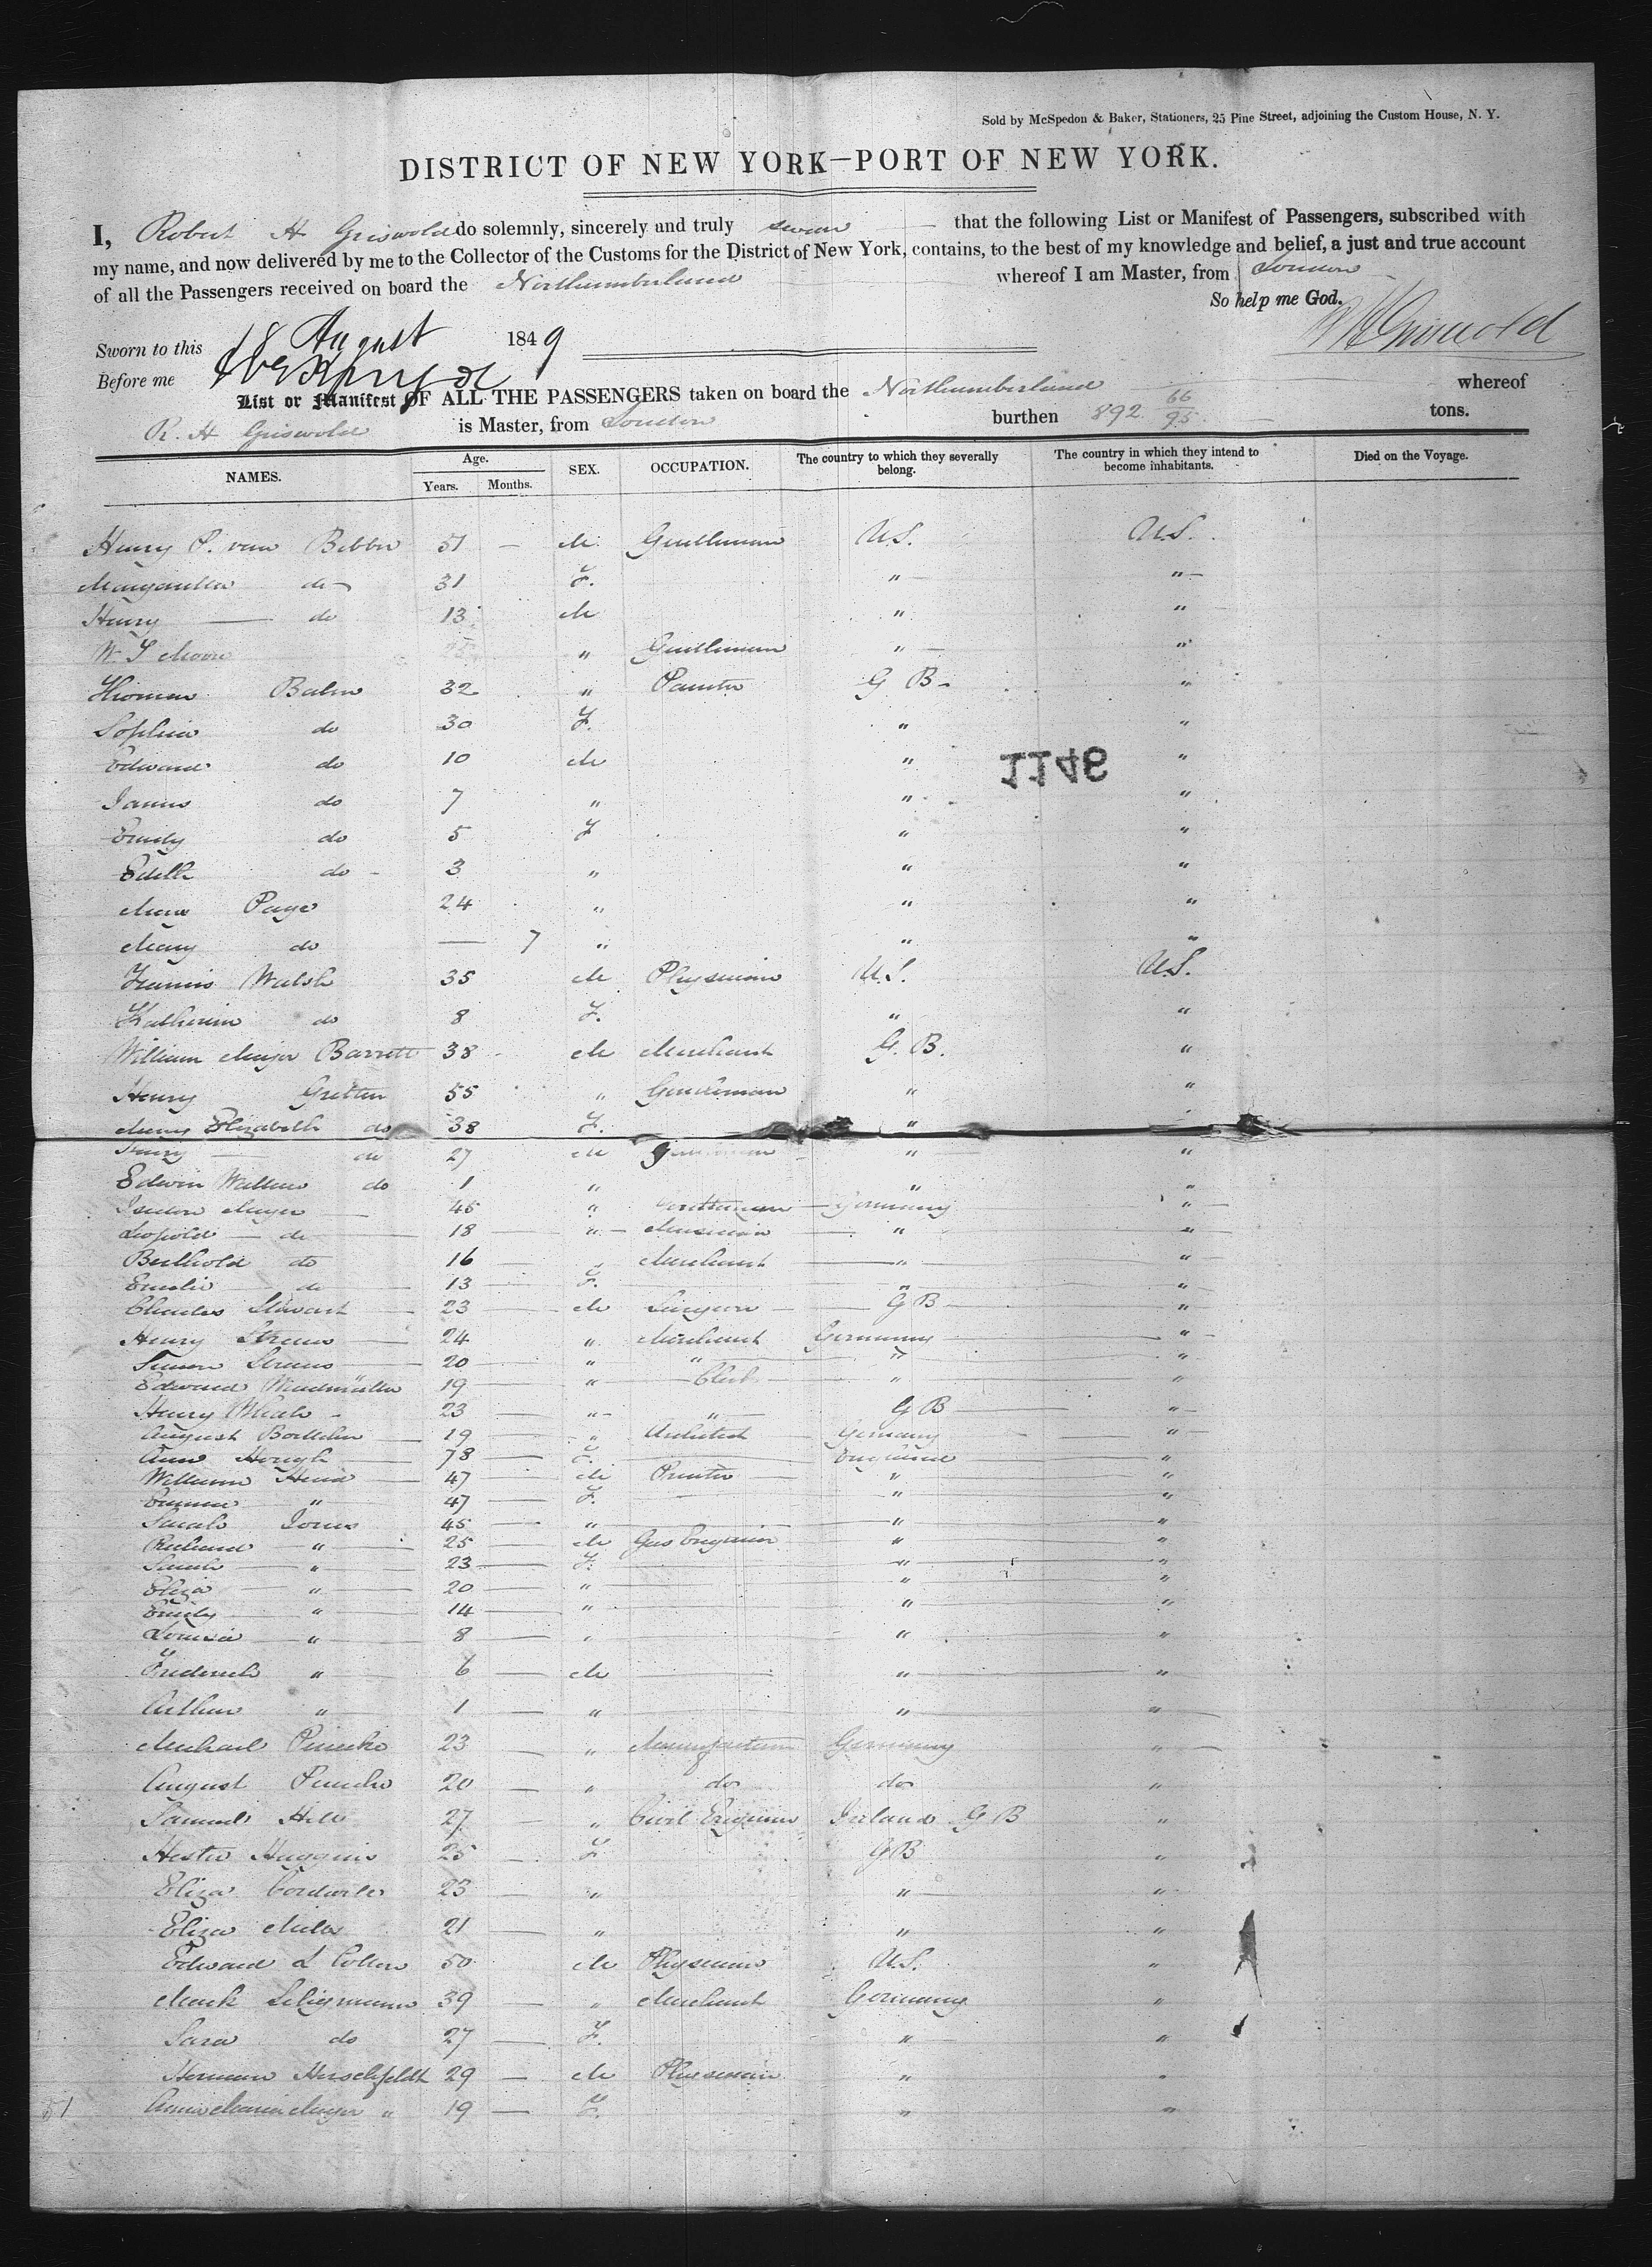 Sold by McSpedon & Baker, Stationers, 25 Pine Street, adjoining the Custom House, N. Y.
DISTRICT OF NEW YORK—PORT OF NEW YORK.
I, Robert H Griswold do solemnly, sincerely and truly swear that the following List or Manifest of Passengers, subscribed with
my name, and now delivered by me to the Collector of the Customs for the District of New York, contains, to the best of my knowledge and belief, a just and true account
of all the Passengers received on board the Northumberland whereof I am Master, from London
So help me God.
Sworn to this 18 August 1849 RH Griswold
Before me
List or Manifest OF ALL THE PASSENGERS taken on board the Northumberland whereof
R. H Griswold is Master, from London burthen 892 66/95 tons.
NAMES. Age. Years. Months. SEX. OCCUPATION. The country to which they severally belong. The country in which they intend to become inhabitants. Died on the Voyage.
Henry P. van Bibber 51 — M. Gentleman U.S. U.S.
Margaretta do 31 F. " "
Henry do 13 M " "
W. S Moore " Gentleman " "
Thomas 32 " Painter G B "
Sophia do 30 F. " "
Edward do 10 M " "
1146
James do 7 " " "
Emily do 5 F " "
Edith do 3 " " "
Page 24 " " "
Mary do — 7 " " "
Francis Walsh 35 M Physician U.S. U.S.
Katherine do 8 F. " "
William Major Barrett 38 M Merchant G. B. "
Henry Gretton 55 " Gentleman " "
Mary Elizabeth do 38 F. "
Henry do 27 M Gentleman " "
Edwin William do 1 " " "
Isidor Mayer 45 " Gentleman Germany "
Leopold do 18 " Musician " "
Berthold do 16 " Merchant " "
Emilie do 13 F. " "
Charles Stewart 23 M Surgeon G B "
Henry Straus 24 " Merchant Germany "
Simon Straus 20 " " " "
Edward Windmüller 19 " Clerk " "
Henry 23 " " G B "
August 19 " Architect Germany "
Ann Hough 78 F. England "
William 47 M Printer " "
Emma " 47 F. " "
Sarah Jones 45 " " "
Richard " 25 M Gas Engineer " "
Sarah " 23 F. " "
Eliza " 20 " " "
Emily " 14 " " "
Louisa " 8 " " "
Frederick " 6 M " "
Arthur " 1 " " "
Michael 23 " Manufacturer Germany "
August 20 " do do "
Samuel Hill 27 " Civil Engineer Ireland G B "
Hester Huggins 25 F GB "
Eliza 23 " " "
Eliza Mills 21 " " "
Edward L 50 M Physician U.S. "
Mark Seligmann 39 " Merchant Germany "
Sara do 27 F. " "
Herman Herschfeldt 29 M Physician " "
Anna Maria Mayer " 19 F. " "
51